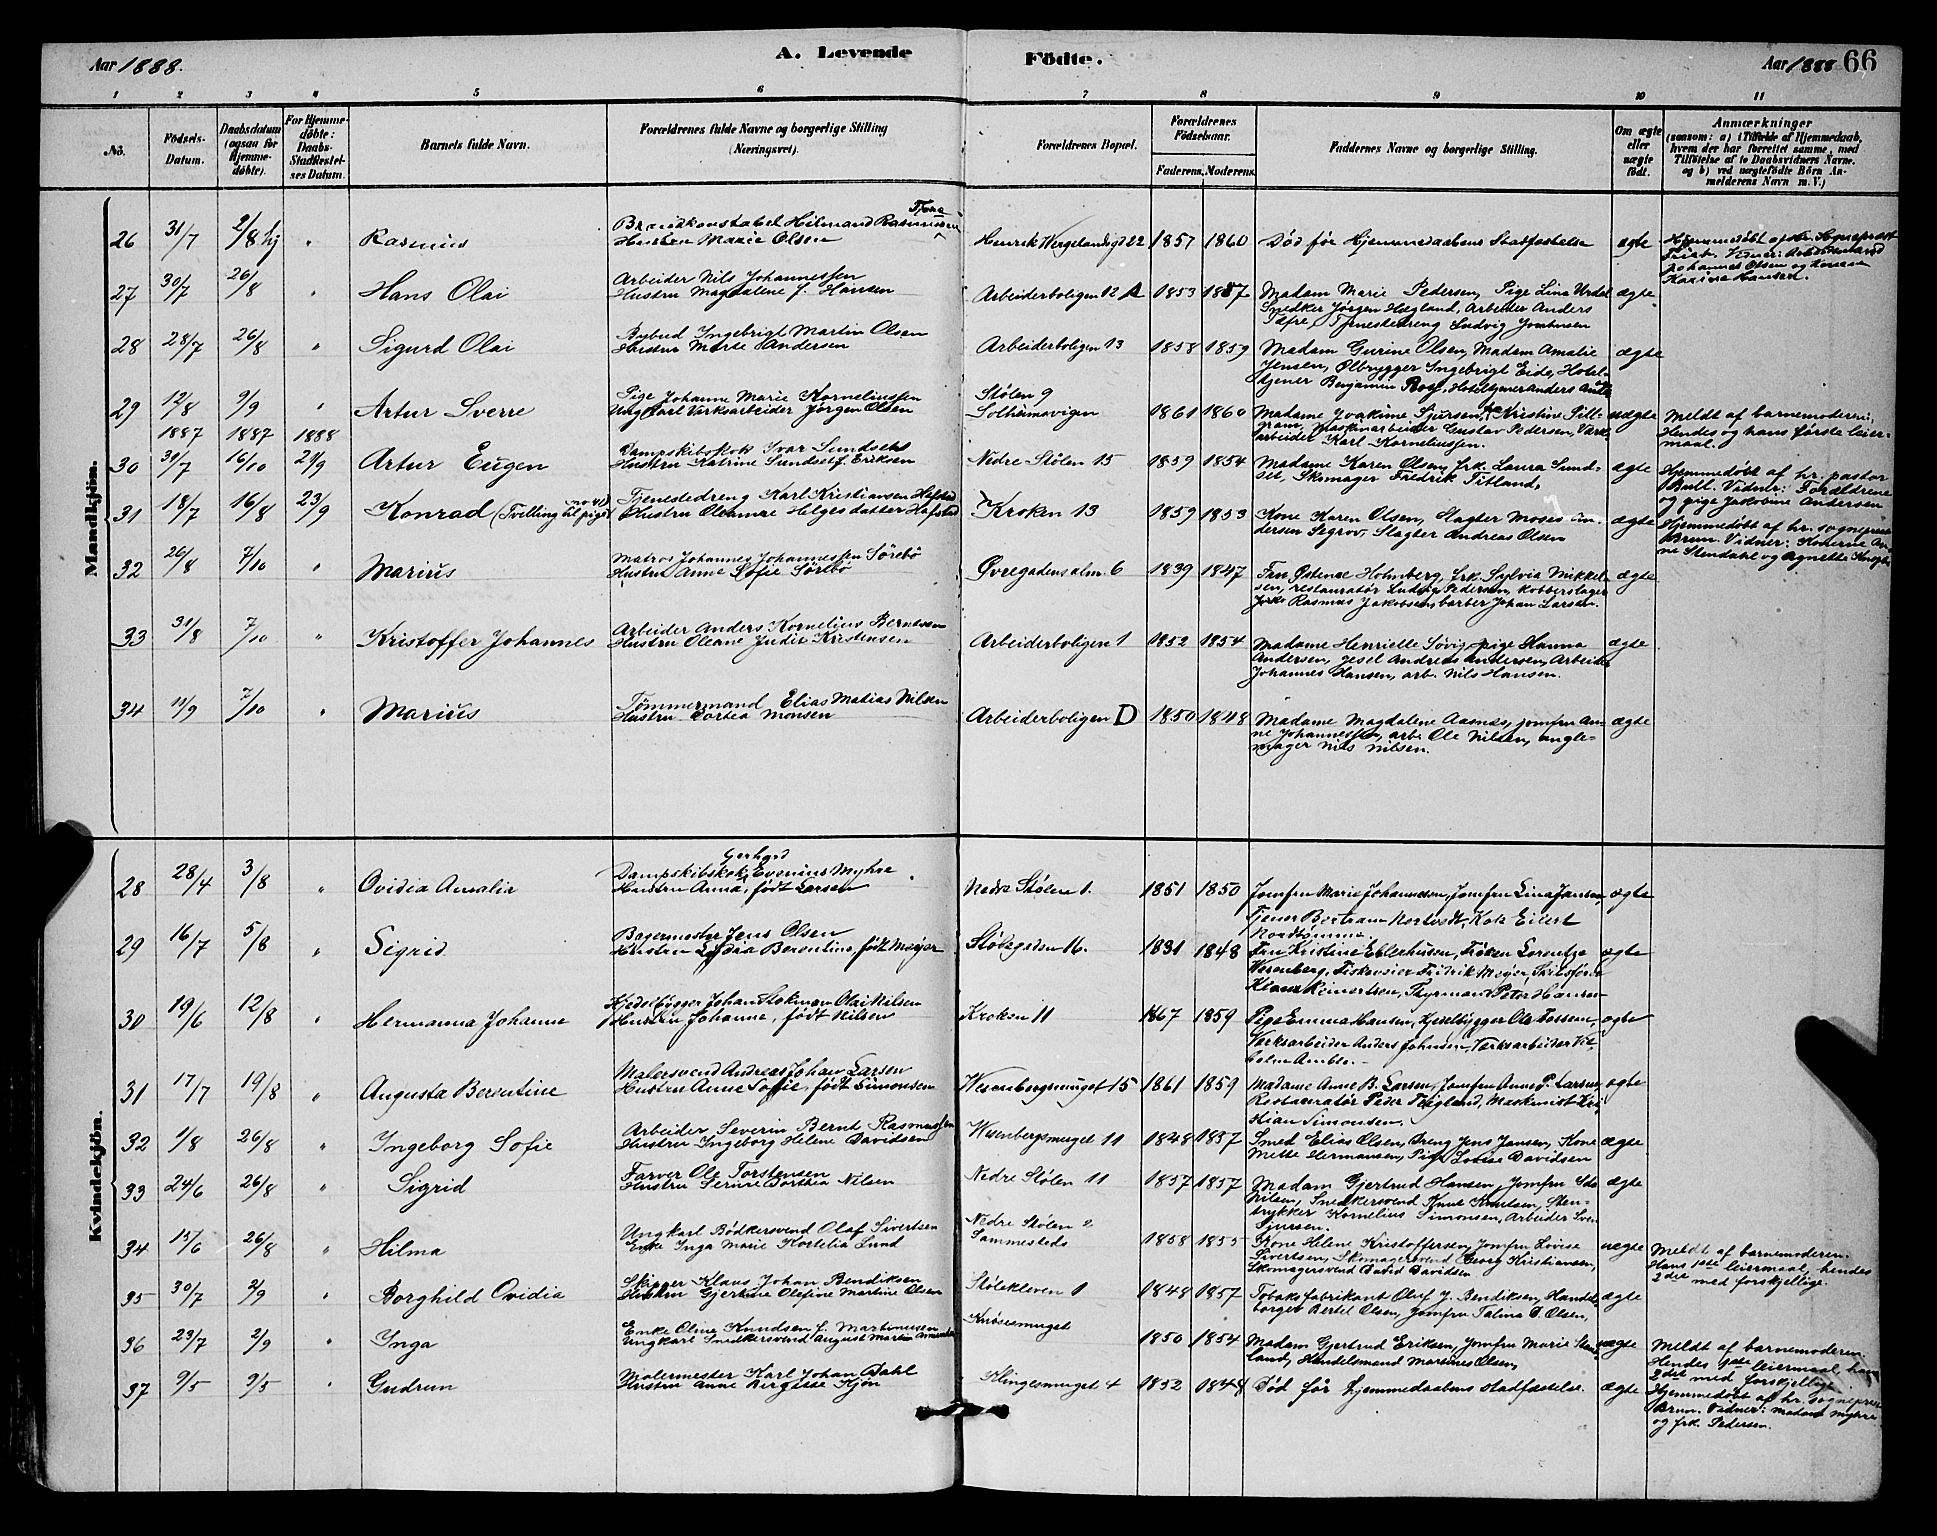 Aar 1888.
A. Levende
Födte.
Aar 1888 66
1 2 3 4 5 6 7 8 9 10 11
No.
Födsels-Datum.
Daabsdatum (ogsaa for Hjemme-döbte).
For Hjemme-döbte: Daabs-Stadfæstel-ses Datum.
Barnets fulde Navn.
Forældrenes fulde Navne og borgerlige Stilling (Næringsvei).
Forældrenes Bopæl.
Forældrenes Födselsaar.
Faderens. Moderens.
Faddernes Navne og borgerlige Stilling.
Om ægte eller uægte födt.
Anmærkninger
(saasom: a) i Tilfælde af Hjemmedaab,
hvem der har forrettet samme, med
Tilföielse af to Daabsvidners Navne.
og b) ved uægtefödte Börn An-
melderens Navn m. V.)
Mandkjön.
26 31/7 2/8 hj " Rasmus
Brandkonstabel Hilmand Rasmussen
Hustru Marie Olsen
Henrik Wergelandsgd 22 1857 1860 Död før Hjemmedaabens Stadfæstelse ægte
Johannes Olsen og Konen
27 30/7 26/8 " Hans Olai
Arbeider Nils Johannessen
Hustru Magdalene f. Hansen
Arbeiderboligen 12 A 1853 1857 Madam Marie Pedersen, Pige Lina Urdal ægte
Snedker Jørgen Hegland, Arbeider Anders
28 28/7 26/8 " Sigurd Olai
Bybud Ingebrigt Martin Olsen
Hustru Marte Andersen
Arbeiderboligen 13 1858 1859 Madam Gurine Olsen, Madam Amalie ægte
Jensen, Ølbrygger Ingebrigt Eide, Hotel-
tjener Benjamin
29 12/8 9/9 " Artur Sverre
Pige Johanne Marie Korneliussen
Ungkarl Værksarbeider Jørgen Olsen
Stølen 9
Solheimsvigen 1861 1860 Madame Joakime Sjursen, Kristine Pill- uægte
gram, Maskinarbeider Gustav Pedersen, Værk-
arbeider Karl Korneliussen.
Meldt af barnemoderen;
Hendes og hans første leier-
maal.
1887 1887 1888
30 31/7 16/10 21/9 Artur Eugen
Dampskibskok Ivar Sundset
Hustru Katrine Sundset f. Eriksen
Nedre Stølen 15 1859 1854 Madame Karen Olsen, frk. Laura Sund- ægte
set, Skomager Fredrik Titland,
Hjemmedøbt af hr. pastor
Bull. Vidner: Forældrene
og pige Jakobine Andersen
31 18/7 16/8 23/9 Konrad (Tvilling til pige no 41)
Tjenestedreng Karl Kristiansen Hafstad
Hustru Oleanna Helgesdatter Hafstad
Kroken 13 1859 1853 Kone Karen Olsen, Slagter Moses An- ægte
dersen Segrov, Slagter Andreas Olsen
Hjemmedøbt af hr. sogneprest
Brun. Vidner: Konerne An-
ne Stendahl og Agnette
32 26/8 7/10 " Marius
Matros Johannes Johannessen Sørebø
Hustru Anne Sofie Sørebø
Øvregadens alm. 6 1839 1847 Fru Østense Holmberg, frk. Sylvia Mikkel- ægte
sen, restauratør Ludvig Pedersen, kobberslager
Rasmus Jakobsen, barber Johan Larsen.
33 31/8 7/10 " Kristoffer Johannes
Arbeider Anders Kornelius Berntsen
Hustru Oleane Judit Kristensen
Arbeiderboligen 1 1852 1854 Madame Henriette Søvig, pige Hanna ægte
Andersen, gesel Andreas Andersen, Arbeider
Johannes Hansen, arb. Nils Hansen.
34 11/9 7/10 " Marius
Tømmermand Elias Matias Nilsen
Hustru Dortea Monsen
Arbeiderboligen D 1850 1848 Madame Magdalene Aasnes, jomfru An- ægte
ne Johannessen, arb. Ole Nilsen, angle-
mager Nils Nilsen.
Kvindekjön.
28 28/4 3/8 " Ovidia Amalie
Gerhard
Dampskibskok Evenius Myhre
Hustru Anna, født Larsen
Nedre Stølen 1. 1851 1850 Jomfru Marie Johannesen, Jomfru Lina Jansen, ægte
Tjener Bertram Nortvedt, Kok Eilert
29 16/7 5/8 " Sigrid
Bagermester Jens Olsen
Hustru Lydia Berentine født Meyer
Stølegaden 16. 1831 1848 Fru Kristine Ellerhusen, Frøken Lorentze ægte
Wesenberg, Fiskeveier Fridrik Meyer, Skibsfører
Reinertsen, Styrmand Peter Hansen
30 19/6 12/8 " Hermanna Johanne
Kjedelbygger Johan Stokman Olai Nilsen
Hustru Johanne, født Nilsen
Kroken 11 1867 1859 Pige Emma Hansen, Kjedelbygger Ole Tossen, ægte
Værksarbeider Anders Johnsen, Værksarbeider Vil-
helm Amble.
31 17/7 19/8 " Augusta Berentine
Malersvend Andreas Johan Larsen
Hustru Anne Sofie, født Simonsen
Wesenbergsmuget 15 1861 1859 Madame Anne B. Larsen, Jomfru Anne P. Larsen ægte
Restauratør Peder Teigland, Maskinist Kri-
stian Simonsen.
32 1/8 26/8 " Ingeborg Sofie
Arbeider Severin Bernt Rasmussen
Hustru Ingeborg Helene Davidsen
Wesenbergsmuget 11 1848 1857 Smed Elias Olsen, Dreng Jens Jansen, Kone ægte
Mette Hermansen, Pige Lovise Davidsen
33 24/6 26/8 " Sigrid
Farver Ole Torstensen
Hustru Serine Dorthia Nilsen
Nedre Stølen 11 1857 1857 Madam Gjertrud Hansen, Jomfru Ida ægte
Nilsen, Snedkersvend Knut Knutsen, Sten-
trykker Kornelius Simonsen, Arbeider Sven
Sjursen.
34 15/6 26/8 " Hilma
Ungkarl Bødkersvend Olaf Sivertsen
Enke Inga Marie Kornelia Lund
Nedre Stølen 2
Sammesteds 1858 1855 Kone Helene Kristoffersen, Jomfru Lovise uægte
Sivertsen, Skomagersvend Georg Kristiansen,
Skomagersvend David Davidsen
Meldt af barnemoderen.
Hans 1ste leiermaal, hendes
2det med forskjellige.
35 30/7 2/9 " Borghild Ovidia
Skipper Klaus Johan Bendiksen
Hustru Gjertine Olefine Martine Olsen
Stølekleven 1 1848 1857 Tobaksfabrikant Oluf J. Bendiksen, Handels- ægte
borger Bertel Olsen, Jomfru Talina D. Olsen,
36 23/7 2/9 " Inga
Enke Oline Knudsen f. Martinussen
Ungkarl Snedkersvend August Martin
Knøsesmuget 1850 1854 Madam Gjertrud Eriksen, Jomfru Marie Sten- uægte
land, Handelsmand Martinus Olsen,
Meldt af barnemoderen.
Hendes 1ste leiermaal, hans
2det med forskjellige.
37 9/5 9/5 " Gudrun
Malermester Karl Johan Dahl
Hustru Anne Birgitte Kjøn
Klingesmuget 4 1852 1848 Død før hjemmedaabens stadfæstelse. ægte
Hjemmedøbt af hr. sogneprest
Brun. Vidner: madam Myhre
og frk. Pedersen.